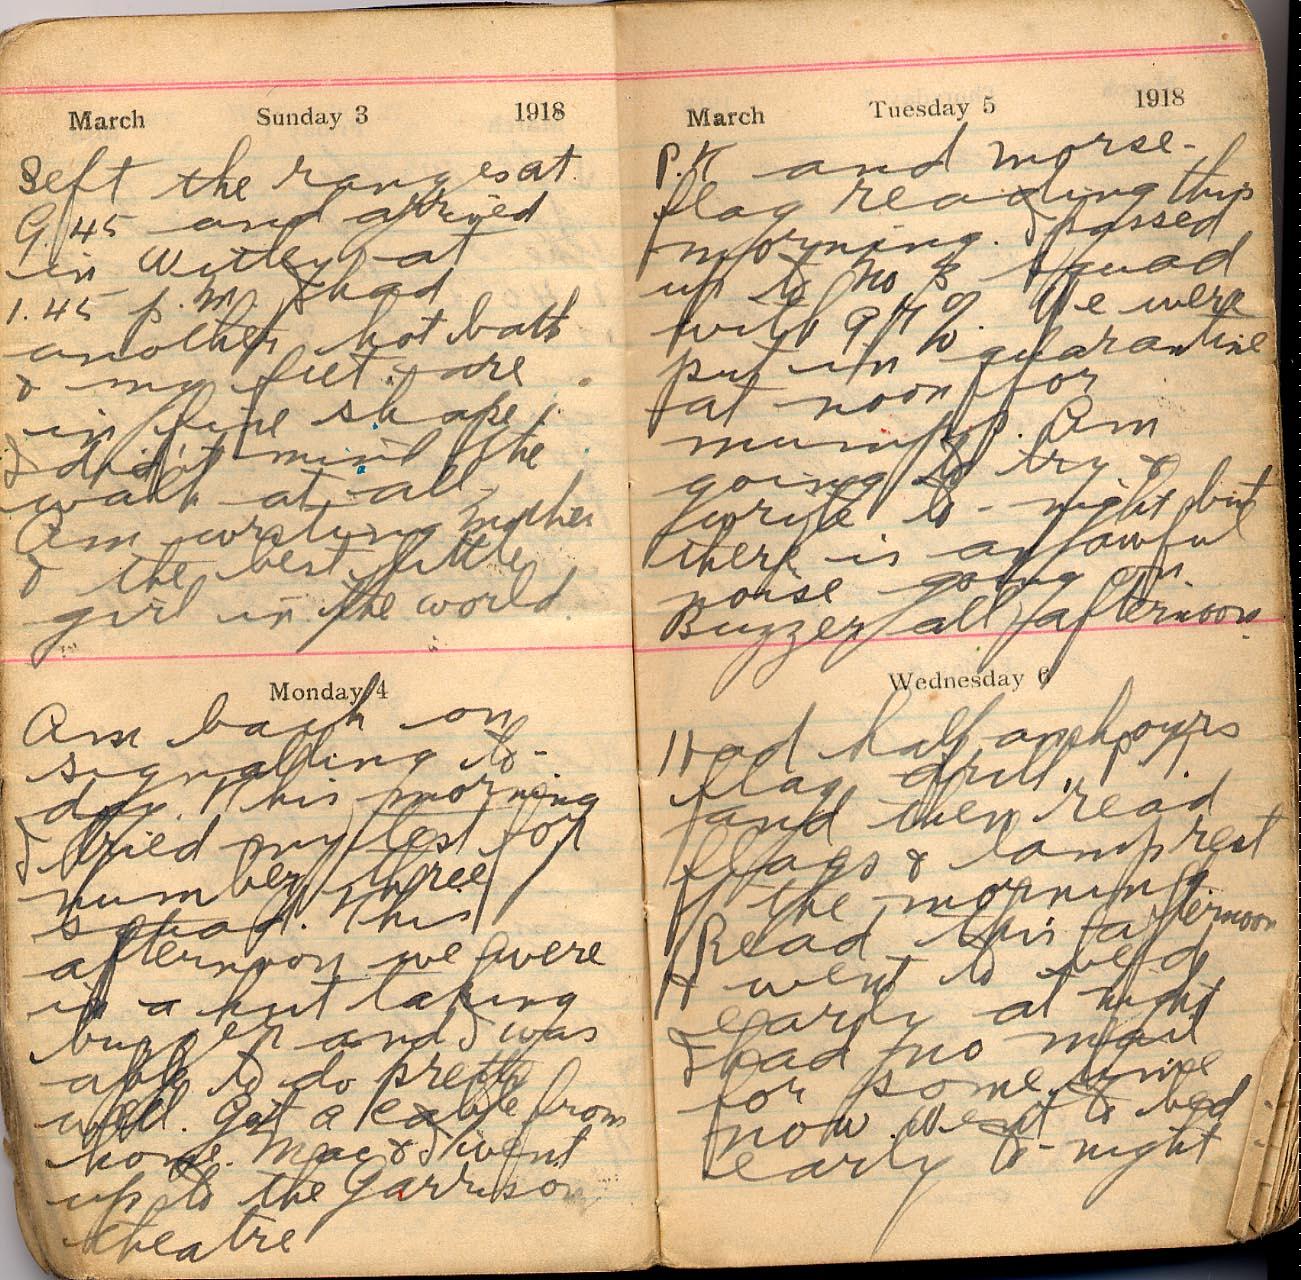 March Sunday 3 1918
Left the ranges at
9.45 and arrived
in Witley at
1.45 p.m. I had
another hot bath
& my feet are
in fine shape,
I didn't mind the
walk at all.
Am writing mother
& the best little
girl in the world
Monday 4
Am back on
signalling to-
day. This morning
I tried my test for
number three
squad. This
afternoon we were
in a hut taking
buzzer and I was
able to do pretty
well. Got a cable from
home. Mac & I went
up to the Garrison
theatre
March Tuesday 5 1918
P.T. and morse-
flag reading this
morning. I passed
up to No 3 squad
with
We were
put in quarantine
at noon for
mumps. Am
going to try &
write to-night but
there is an awful
noise going on.
Buzzer all afternoon
Wednesday 6
Had half an hours
flag drill
and then read
flags & lamp rest
of the morning.
Read this afternoon
& went to bed
early at night
I had no mail
for some time
now. Went to bed
early to-night